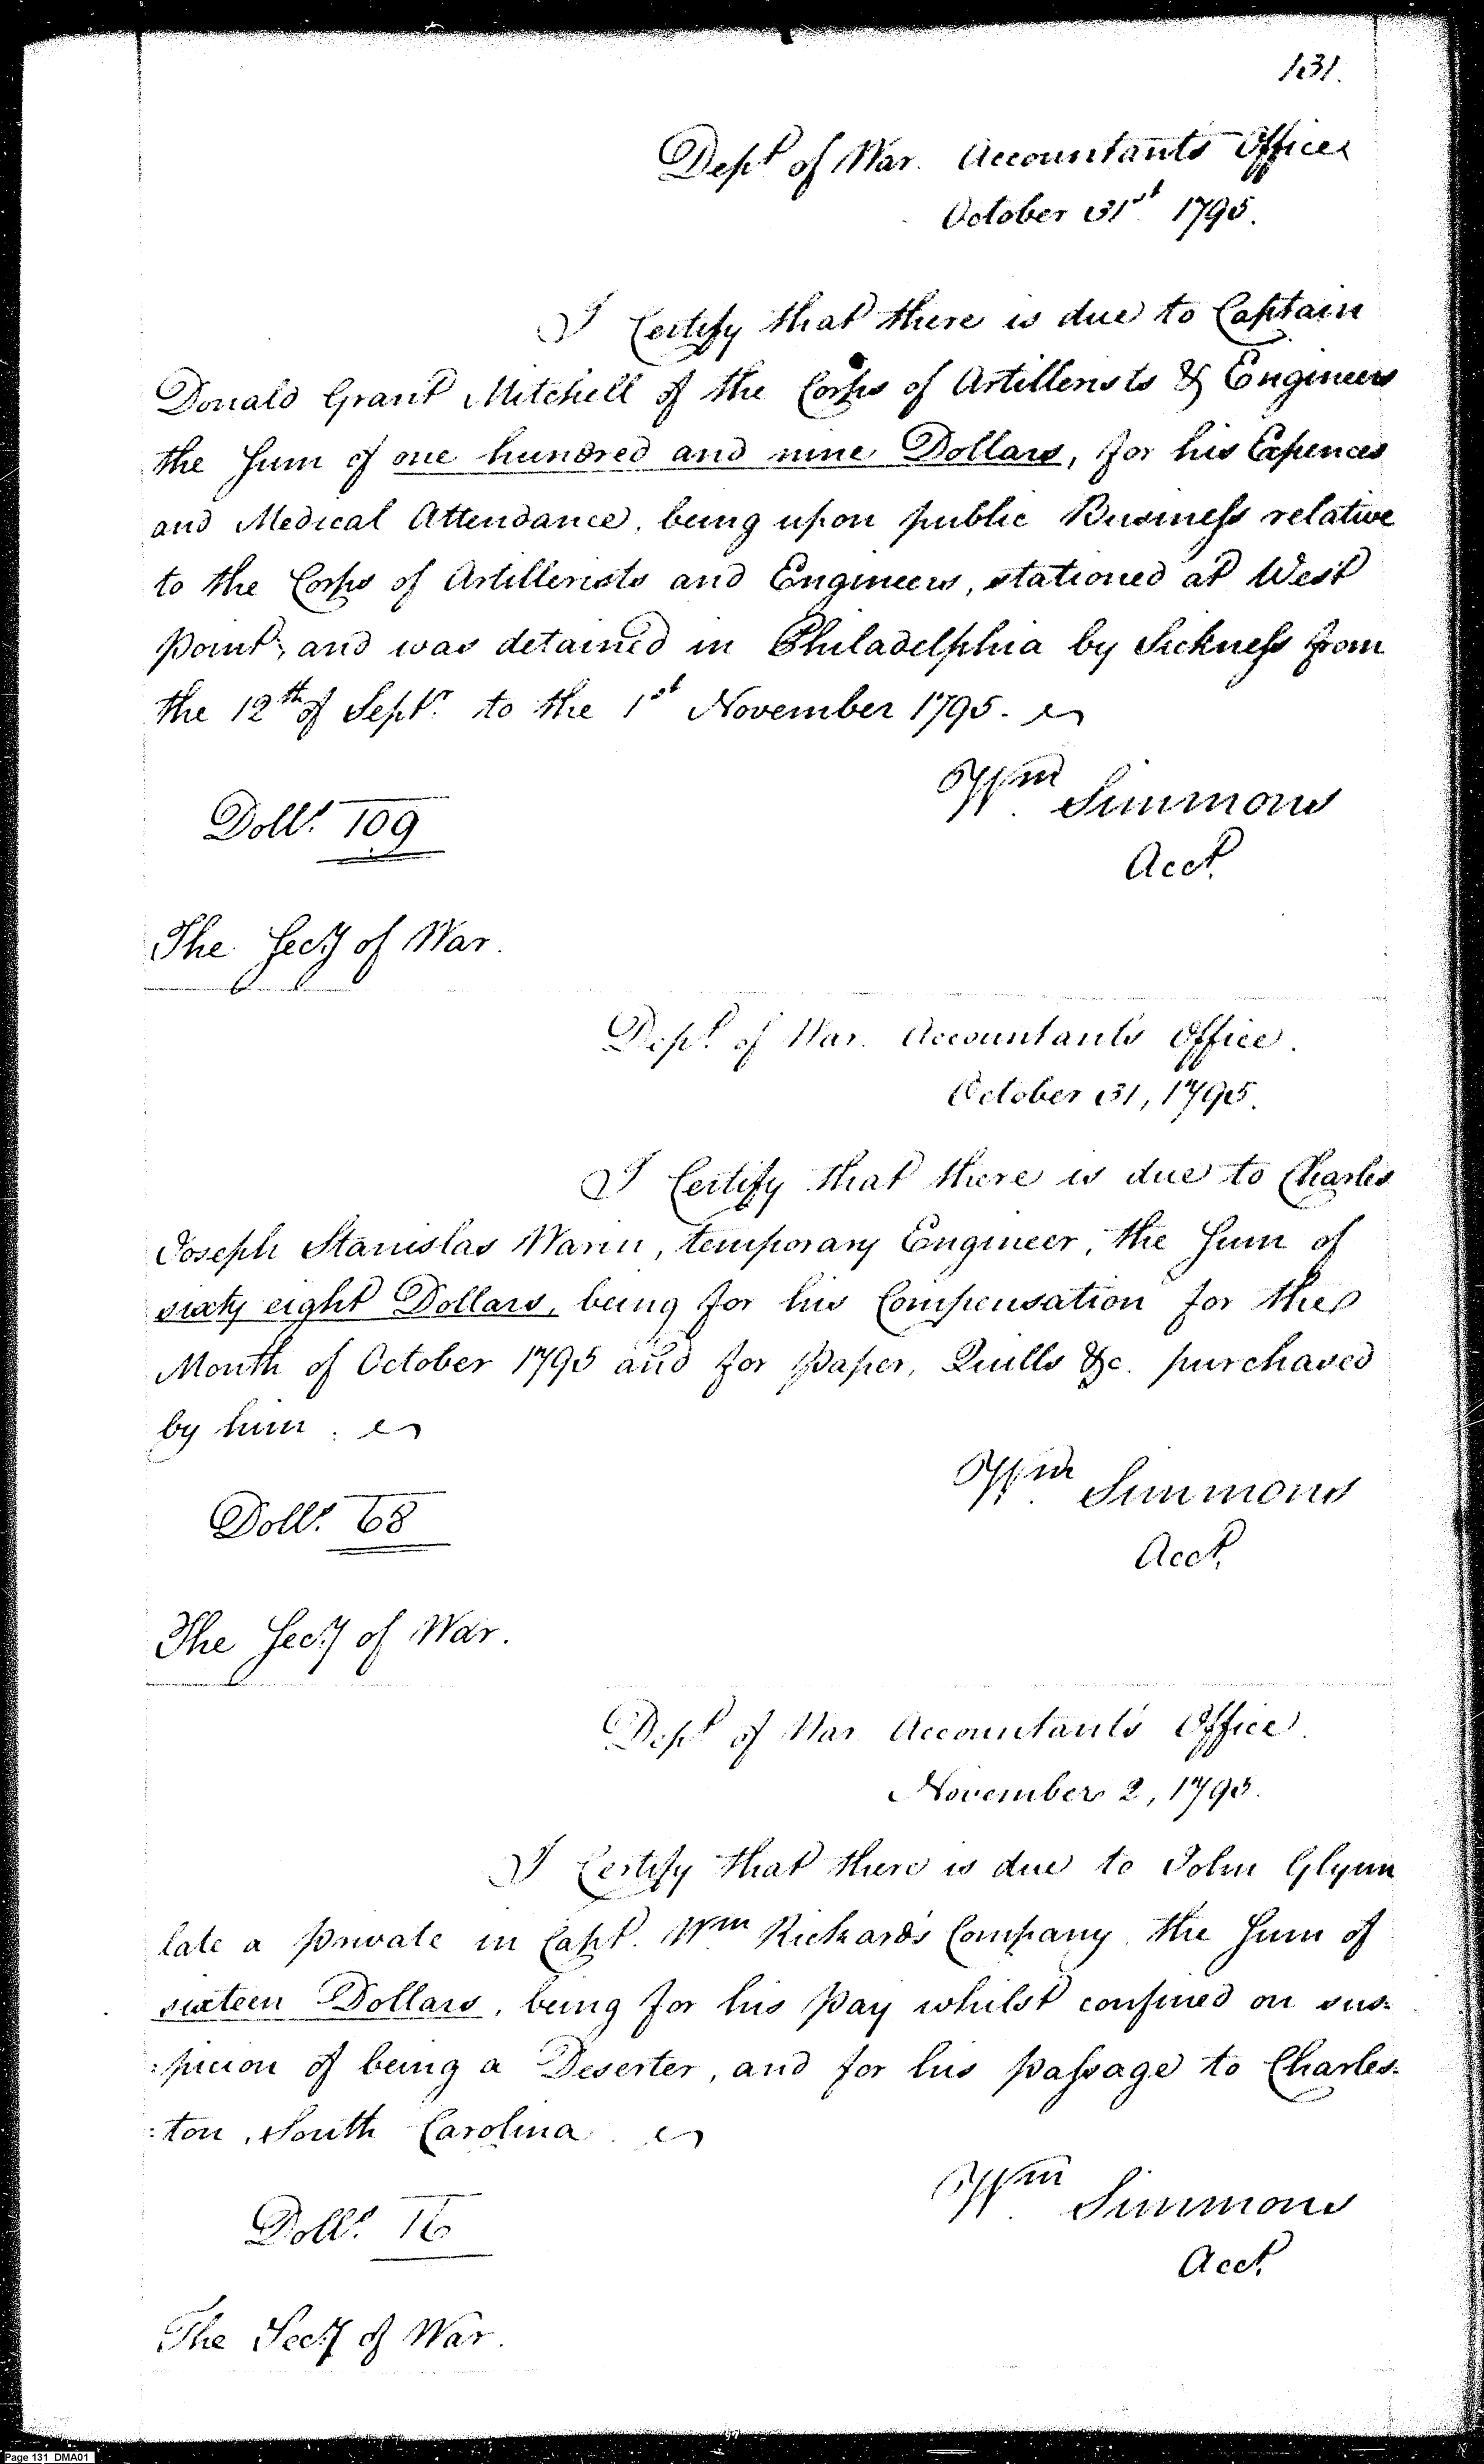 131.
Dept of War. Accountants Office
October 31st 1795.
I Certify that there is due to Captain
Donald Grant Mitchell of the Corps of Artillerists & Engineers
the Sum of one hundred and nine Dollars, for his Expences
and Medical Attendance, being upon public Business relative
to the Corps of Artillerists and Engineers, stationed at West
point, and was detained in Philadelphia by Sickness from
the 12th of Septr. to the 1st November 1795.
Wm Simmons
Dolls. 109
Acct.
The Secy of War.
Dept. of War. Accountant's Office.
October 31, 1795.
I Certify that there is due to Charles
Joseph Stanislas Warin, temporary Engineer, the Sum of
sixty eight Dollars, being for his Compensation for the
Month of October 1795 and for paper, Quills &c. purchased
by him.
Wm Simmons
Dolls. 68
Acct.
The Secy of War.
Dept of War Accountant's Office.
November 2, 1795.
I Certify that there is due to John Glynn
late a private in Capt. Wm Rickard's Company the Sum of
sixteen Dollars, being for his pay whilst confined on sus=
:picion of being a Deserter, and for his passage to Charles=
:ton, South Carolina.
Wm Simmons
Dolls. 16
Acct.
The Secy of War.
Page 131 DMA01